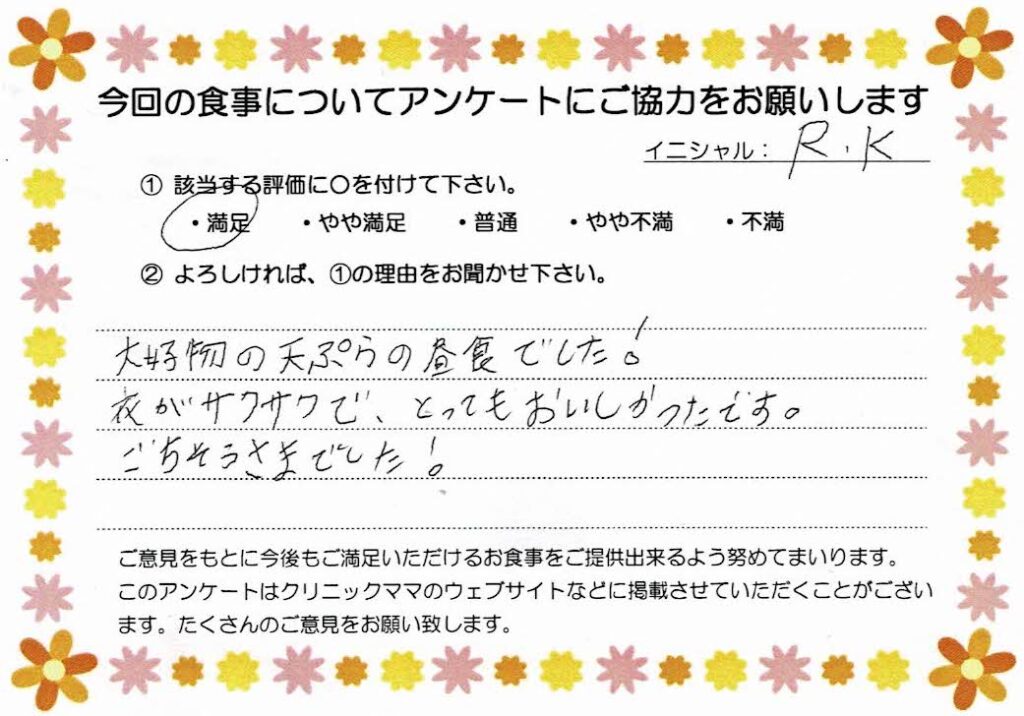 今回の食事についてアンケートにご協力をお願いします
イニシャル： R.K
① 該当する評価に○を付けて下さい。
・満足 ・やや満足 ・普通 ・やや不満 ・不満
② よろしければ、①の理由をお聞かせ下さい。
大好物の天ぷらの昼食でした！
衣がサクサクで、とってもおいしかったです。
ごちそうさまでした！
ご意見をもとに今後もご満足いただけるお食事をご提供出来るよう努めてまいります。
このアンケートはクリニックママのウェブサイトなどに掲載させていただくことがござい
ます。たくさんのご意見をお願い致します。